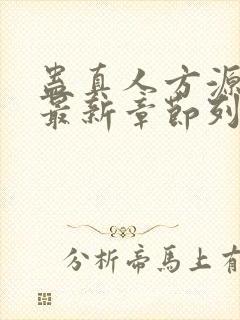 蛊真人方源
最新章节列
分析帝馬上有